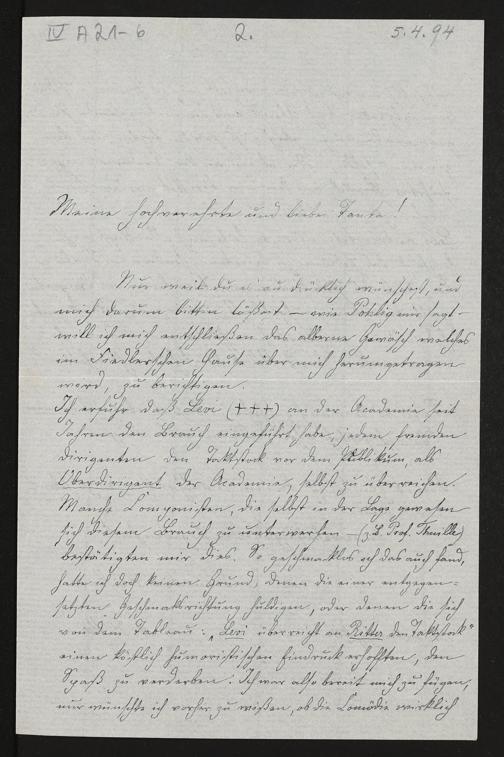 IV A 21-6 2. 5.4.94
Meine hochverehrte und liebe Tante!
Nur weil du es ausdrüklich wünschest, und
mich darum bitten läßest – wie Pohlig mir sagt –
will ich mich entschließen das alberne Gewäsch welches
im Fiedlerschen Hause über mich herumgetragen
ward, zu berichtigen.
Ich erfuhr daß Levi (+++) an der Academie seit
Jahren den Brauch eingeführt habe, jedem fremden
Dirigenten den Taktstock vor dem Publikum, als
Oberdirigent der Academie, selbst zu überreichen.
Manche Componisten, die selbst in der Lage gewesen
sich diesem Brauch zu unterwerfen – (z.B. Prof. Thuille)
bestätigten mir dies. So geschmaklos ich das auch fand,
hatte ich doch keinen Grund, denen die einer entgegen-
setzten Geschmaksrichtung huldigen, oder denen die sich
von dem Tableau: „Levi überreicht an Ritter den Taktstock“
einen köstlich humoristischen Eindruck erhofften, den
Spaß zu verderben. Ich war also bereit mich zu fügen,
nur wünschte ich vorher zu wißen, ob die Comödie wirklich